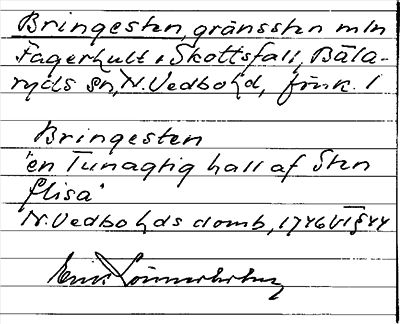 Bringesten, gränssten mln
Fagerhult o Skottsfall, Bäla-
ryds sn, N. Vedbo hd, fink. 1
Bringesten
"en Tunagtig hall af Sten
flisa"
N. Vedbo hds domb, 1746 VI § 44